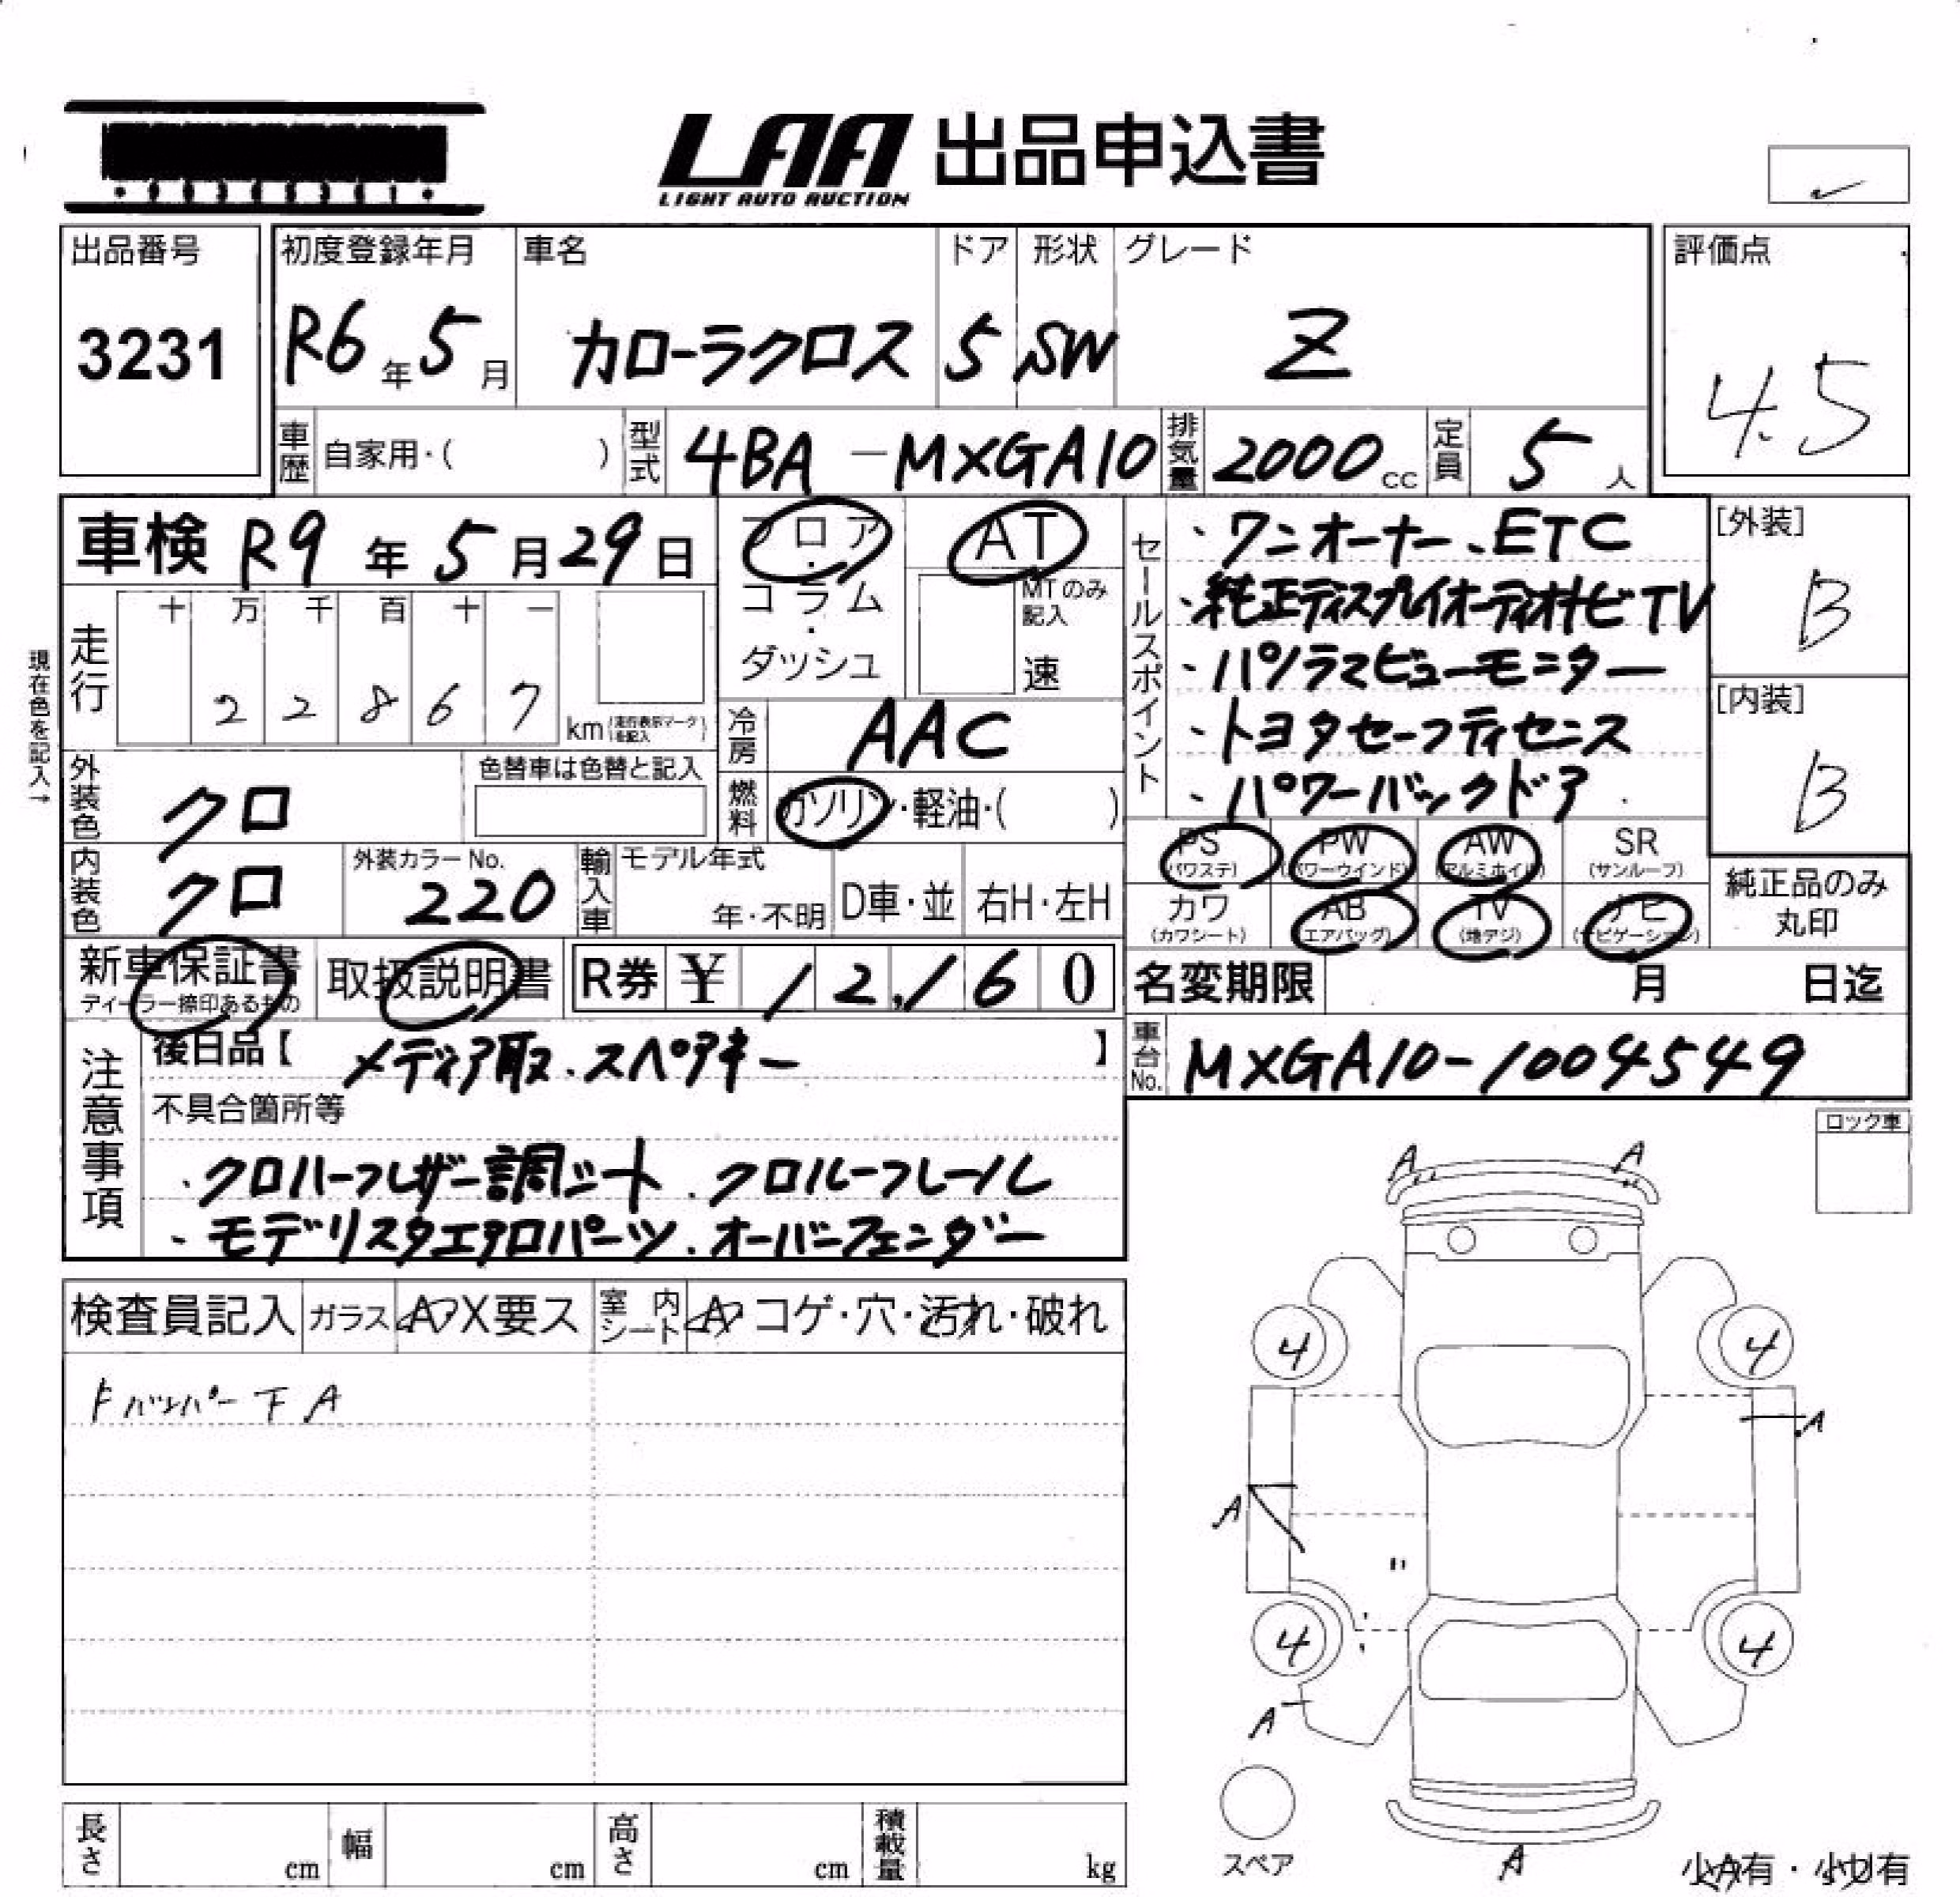 LAA 出品申込書
LIGHT AUTO AUCTION
出品番号
3231
初度登録年月
R6年5月
車名
カローラクロス
ドア
5
形状
SW
グレード
Z
評価点
4.5
車歴 自家用・( )
型式 4BA-MXGA10
排気量 2000cc
定員 5人
車検 R9年5月29日
フロア・コラム・ダッシュ
AT
MTのみ記入
速
現在色を記入→
走行
十 万 千 百 十 一
2 2 8 6 7
km (走行表示マークを記入)
冷房 AAC
燃料 ガソリン・軽油・( )
外装色 クロ
色替車は色替と記入
内装色 クロ
外装カラーNo.
220
輸入車
モデル年式
年・不明
D車・並
右H・左H
セールスポイント
・ワンオーナー、ETC
・純正ディスプレイオーディオナビTV
・パノラマビューモニター
・トヨタセーフティセンス
・パワーバックドア
[外装]
B
[内装]
B
PS (パワステ)
PW (パワーウインド)
AW (アルミホイル)
SR (サンルーフ)
カワ (カワシート)
AB (エアバッグ)
TV (地デジ)
ナビ (ナビゲーション)
純正品のみ
丸印
新車保証書
ディーラー捺印あるもの
取扱説明書
R券 ¥ 12,160
名変期限 月 日迄
車台No. MXGA10-1004549
注意事項
後日品【 メディア取、スペアキー 】
不具合箇所等
・クロハーフレザー調シート、クロルーフレール
・モデリスタエアロパーツ、オーバーフェンダー
ロック車
検査員記入
ガラス A・X要ス
室内シート A・コゲ・穴・汚れ・破れ
Fバンパー下A
A
A
4
4
A
A
4
4
A
A
スペア
小A有・小U有
長さ cm
幅 cm
高さ cm
積載量 kg